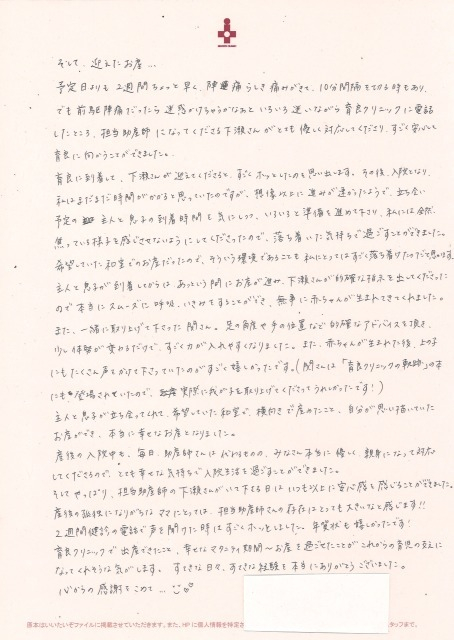 そして、迎えたお産…
予定日よりも2週間ちょっと早く、陣痛らしき痛みがきて、10分間隔を切る時もあり、
でも前駆陣痛だったら迷惑かけちゃうかなあといろいろ迷いながら育良クリニックに電話
したところ、担当助産師になってくださる下瀬さんがとても優しく対応してくださり、すごく安心して
育良に向かうことができました。
育良に到着して、下瀬さんが迎えてくださると、すごくホッとしたのを思い出します。その後、入院となり、
私はまだまだ時間がかかると思っていたのですが、想像以上に進みが速かったようで、立ち会い
予定の主人と息子の到着時間を気にしつつ、いろいろと準備を進めて下さり、私には全然
焦っている様子を感じさせないようにしてくださったので、落ち着いた気持ちで過ごすことができました。
希望していた和室でのお産だったので、そういう環境であることも私にとってはすごく落ち着けたのだと思います。
主人と息子が到着してからはあっという間にお産が進み、下瀬さんが的確な指示を出してくださった
ので本当にスムーズに呼吸、いきみをすることができ、無事に赤ちゃんが生まれてきてくれました。
また、一緒に取り上げて下さった関さん。足の角度や手の位置など的確なアドバイスを頂き、
少し体勢が変わるだけで、すごく力が入れやすくなりました。また、赤ちゃんが生まれた後、上の子
にもたくさん声をかけて下さっていたのがすごく嬉しかったです。(関さんは「育良クリニックの軌跡」の本
にも登場されていたので、実際に我が子を取り上げてくださってうれしかったです!)
主人と息子が立ち会ってくれて、希望していた和室で、横向きで産めたこと、自分が思い描いていた
お産ができ、本当に幸せなお産となりました。
産後の入院中も、毎日、助産師さんは代わるものの、みなさん本当に優しく、親身になって対応
してくださるので、とても幸せな気持ちで入院生活を過ごすことができました。
そしてやっぱり、担当助産師の下瀬さんがいて下さる日はいつも以上に安心感を感じることができました。
産後の孤独になりがちなママにとっては、担当助産師さんの存在はとっても大きいなと感じます!!
2週間健診の電話で声を聞けた時はすごくホッとしました。年賀状も嬉しかったです!
育良クリニックで出産できたこと、幸せなマタニティ期間〜お産を過ごせたことがこれからの育児の支えに
なってくれそうな気がします。すてきな日々、すてきな経験を本当にありがとうございました。
心からの感謝をこめて…
原本はいいたいぞファイルに掲載させていただきます。また、HPに個人情報を特定さ
タッフまで。